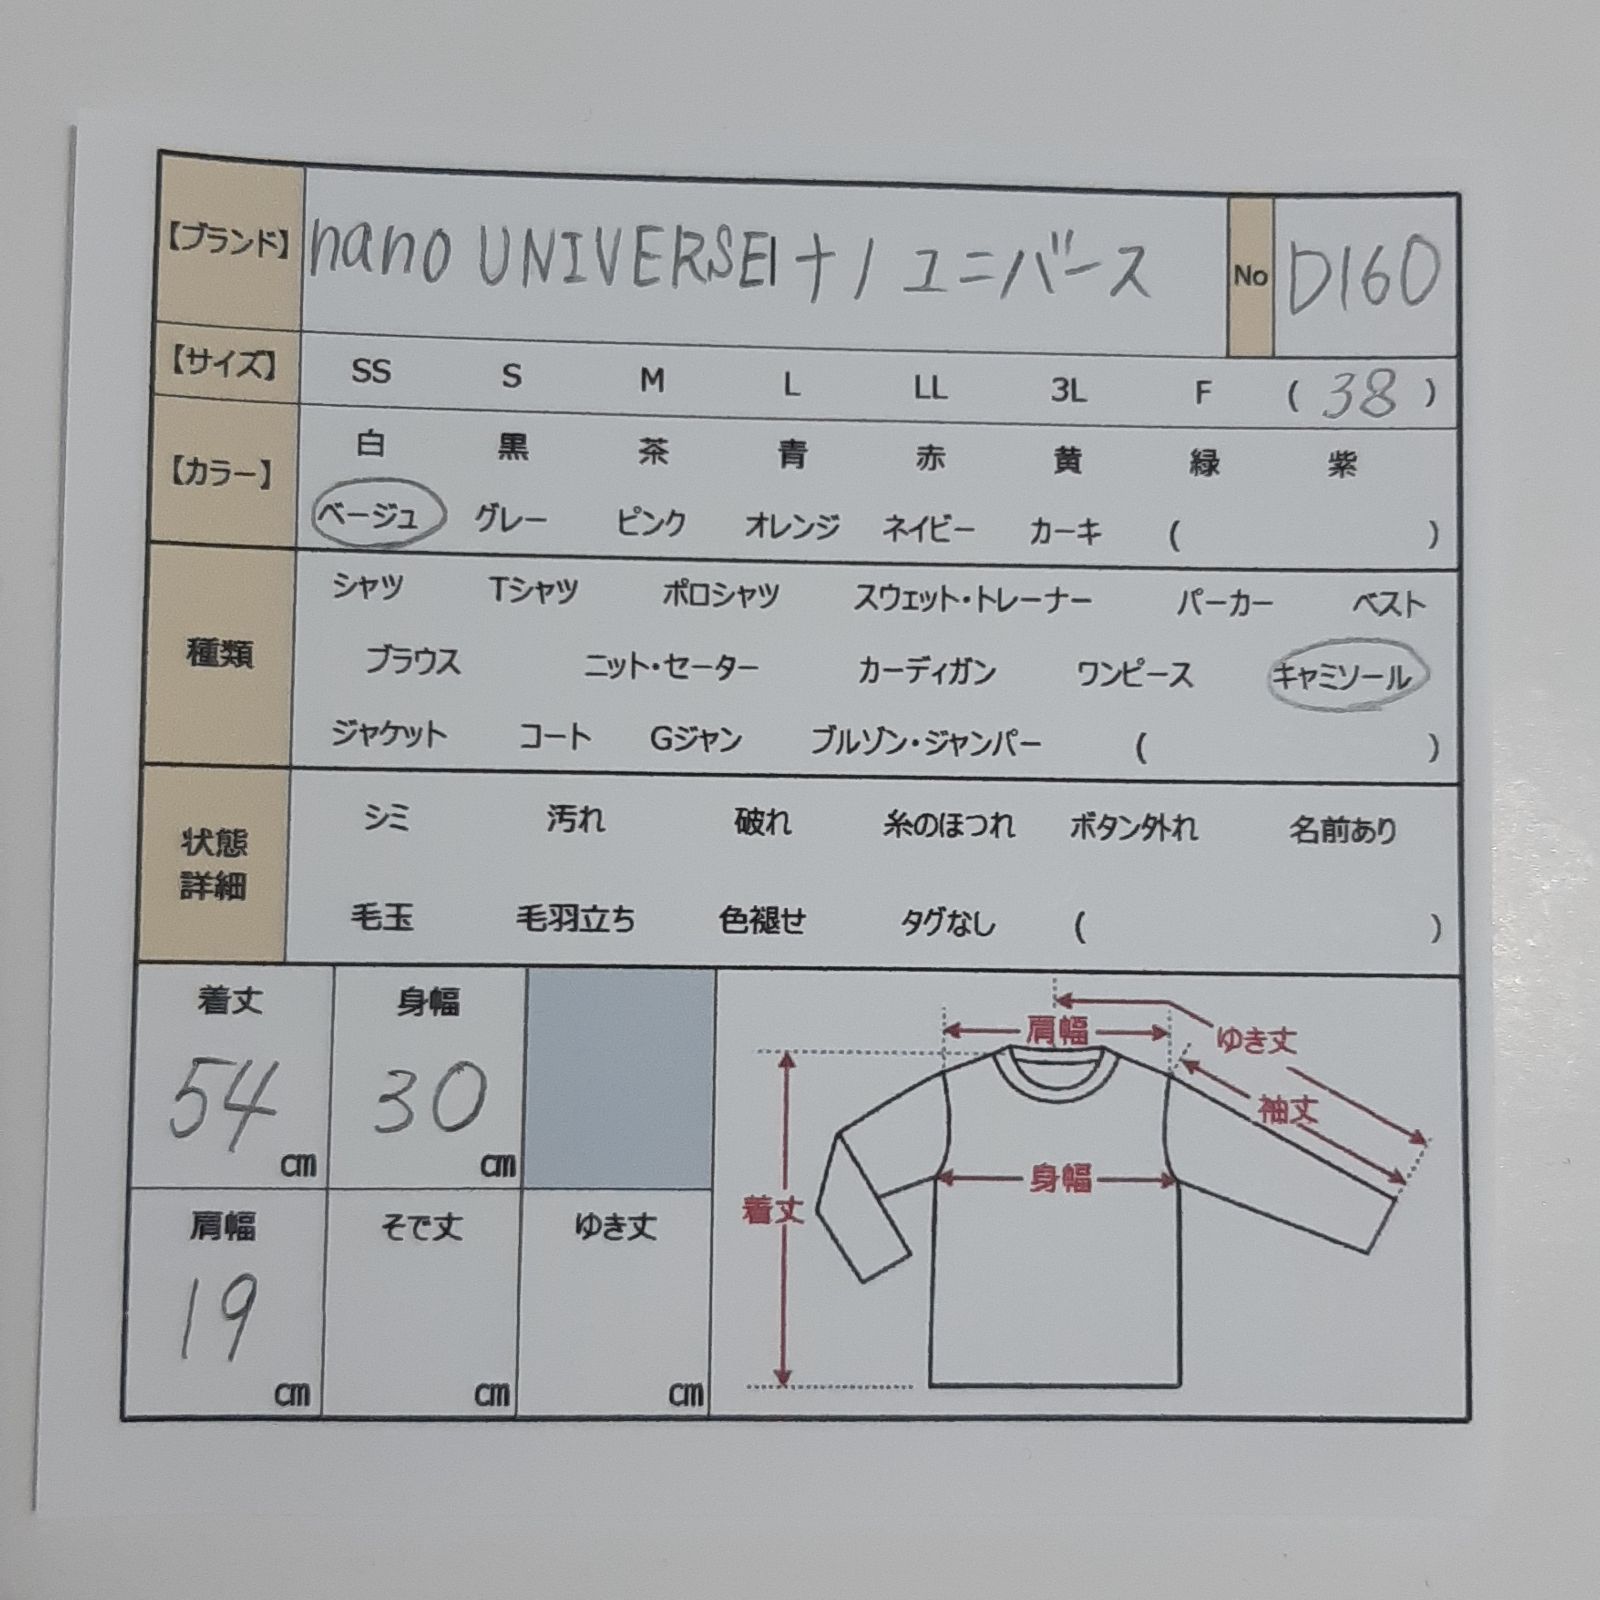 【ブランド】 nano UNIVERSE|ナノユニバース No D160
【サイズ】 SS S M L LL 3L F ( 38 )
【カラー】 白 黒 茶 青 赤 黄 緑 紫
ベージュ グレー ピンク オレンジ ネイビー カーキ ( )
種類 シャツ Tシャツ ポロシャツ スウェット・トレーナー パーカー ベスト
ブラウス ニット・セーター カーディガン ワンピース キャミソール
ジャケット コート Gジャン ブルゾン・ジャンパー ( )
状態
詳細
シミ 汚れ 破れ 糸のほつれ ボタン外れ 名前あり
毛玉 毛羽立ち 色褪せ タグなし ( )
着丈 身幅
54 cm 30 cm
肩幅 そで丈 ゆき丈
19 cm cm cm
肩幅
ゆき丈
袖丈
身幅
着丈